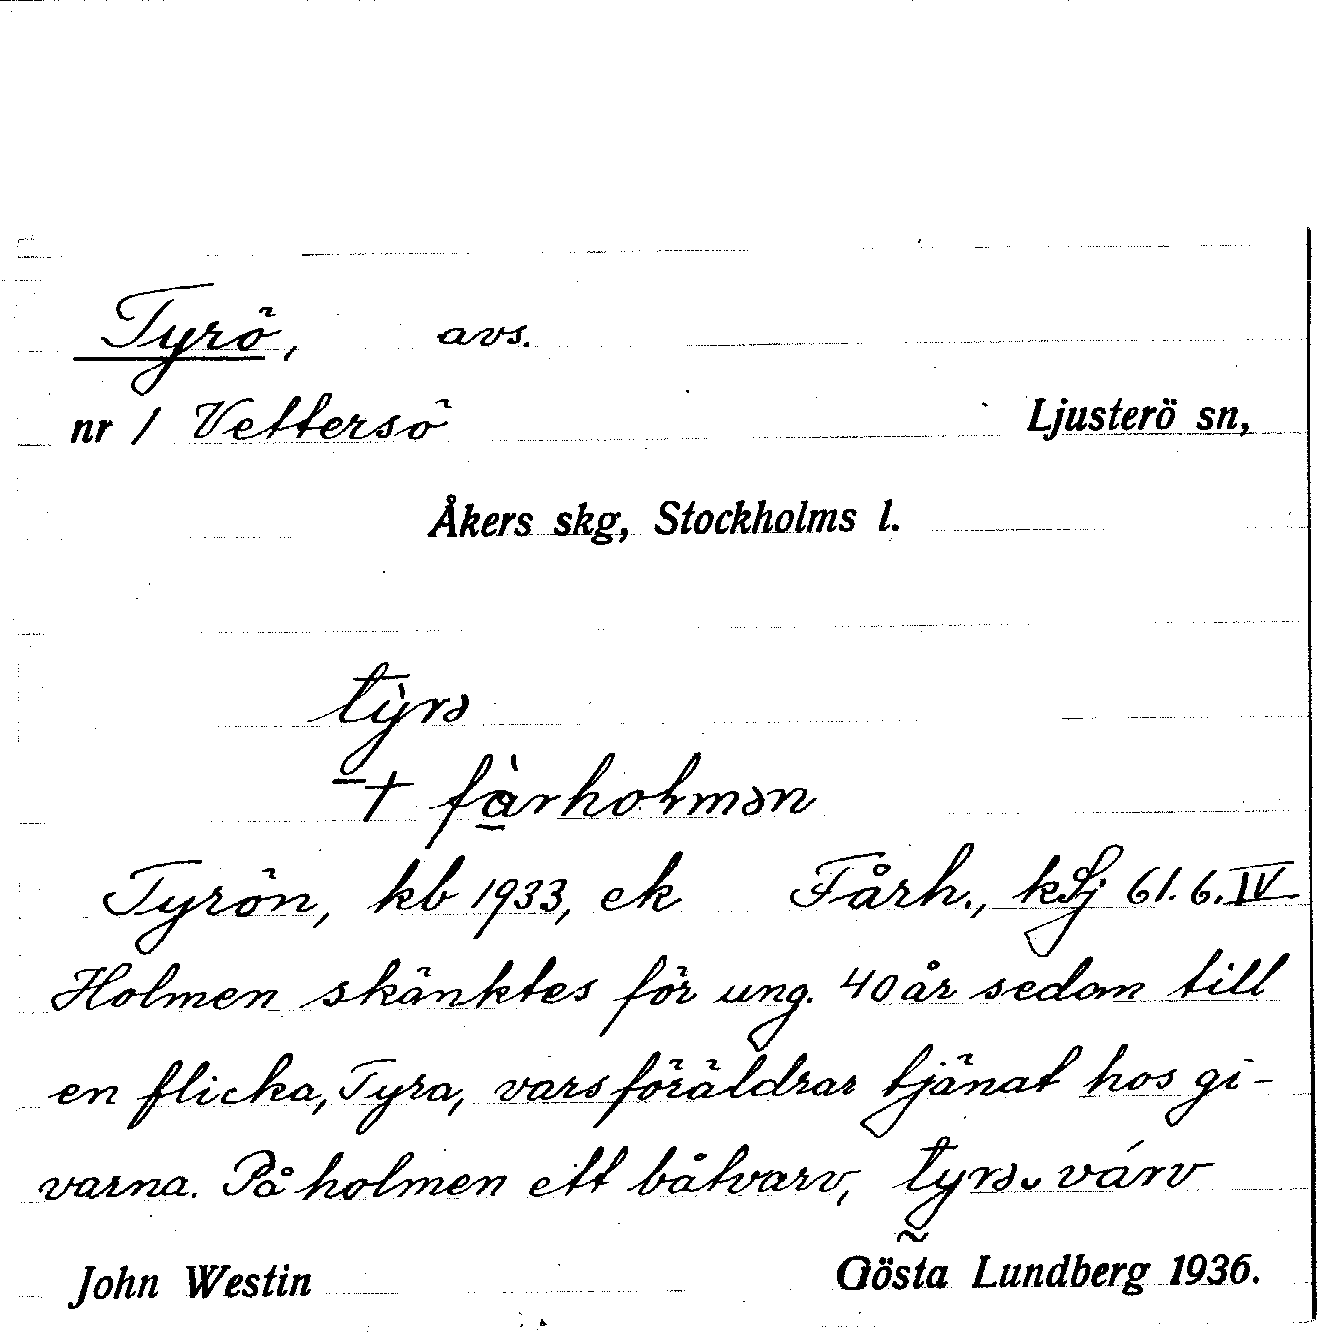 Tyrö, avs.
nr 1 Vettersö Ljusterö sn,
Åkers skg, Stockholms l.
tỳrə
+ fårholmən
Tyrön, kb 1933, ek Fårh., kLj 61.6.IV
Holmen skänktes för ung. 40 år sedan till
en flicka, Tyra, vars föräldrar tjänat hos gi-
varna. På holmen ett båtvarv, tyrə várv
John Westin Gösta Lundberg 1936.